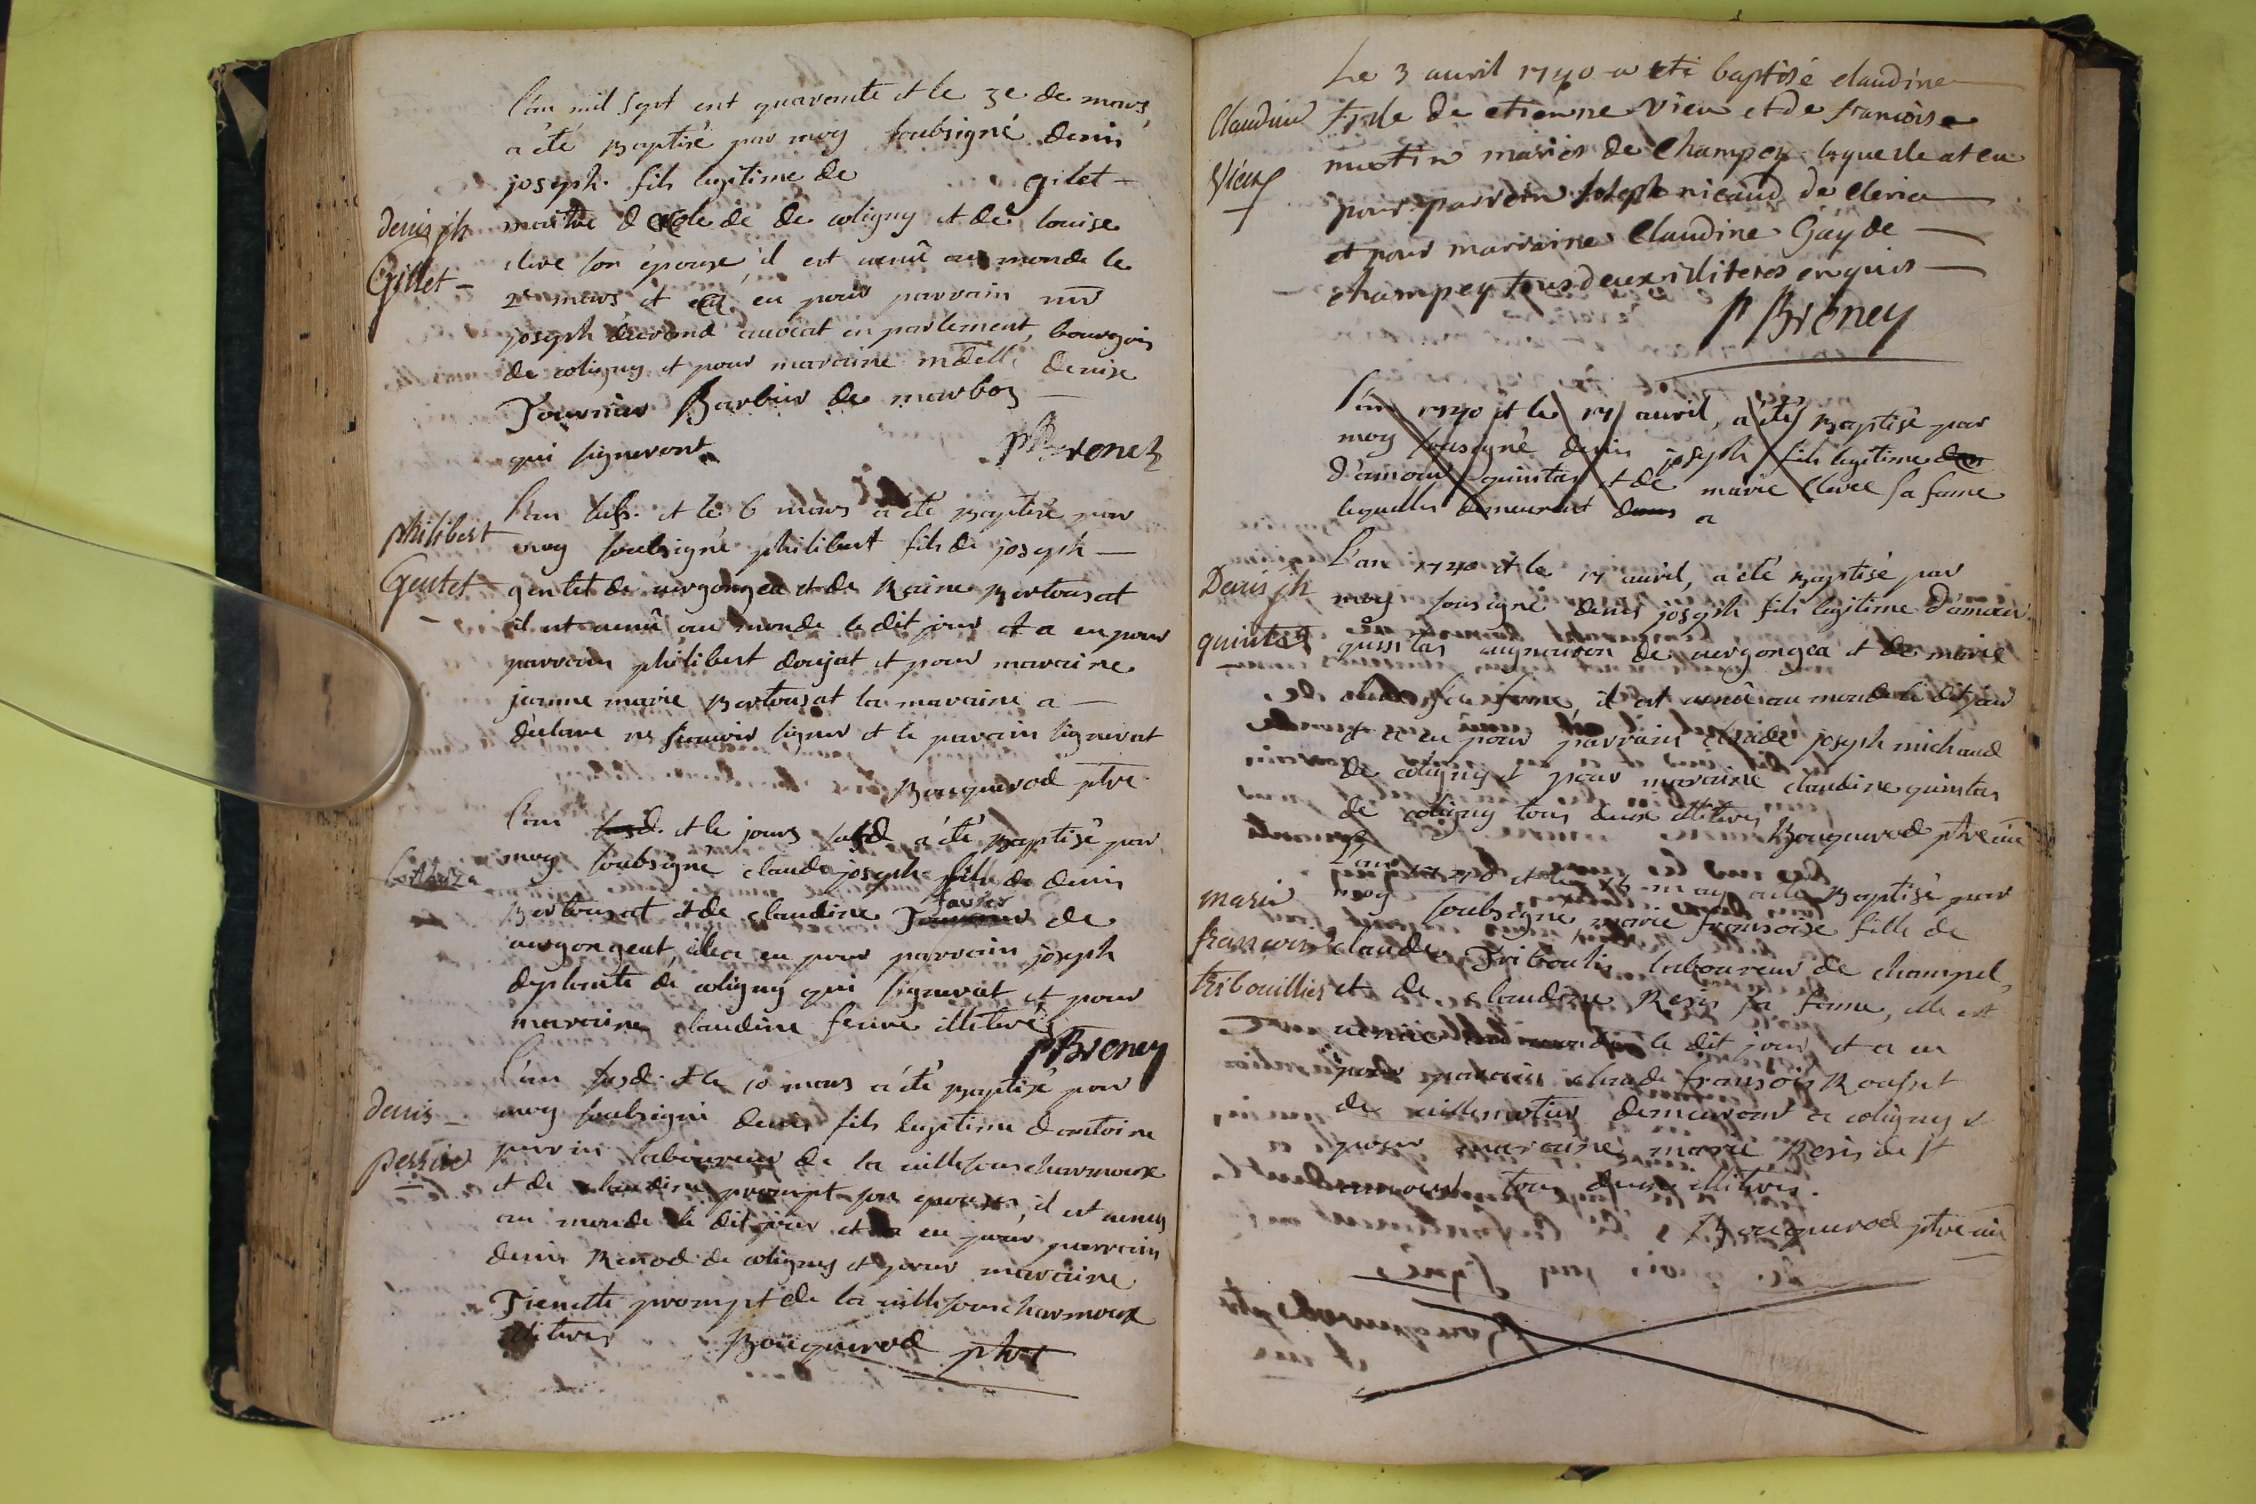 l'an mil sept cent quarente et le 3e de mars
a été Baptisé par moy soubsigné denis
joseph fils legitime de gilet
denis jh
Gillet
maitre d de de coligny et de louise
clere son épouse, il est venû au monde le
2e mars et a eu pour parrain mr
joseph durand auocat en parlement, bourgois
de coligny et pour maraine mdelle denise
Tournier Barbier de marboz
qui signeront P Broney
philibert
Gentet
l'an susd. et le 6 mars a été Baptisé par
moy soubsigné philibert fils de joseph
gentet de vergongea et de Raine Bertousat
il est venû au monde le dit jour et a eu pour
parrain philibert doujat et pour maraine
jeanne marie Bertousat la maraine a
déclaré ne scauoir signer et le parain signerat
Bouquerod ptre
l'an susd. et le jours susd a été Baptisé par
moy soubsigné claude joseph fils de denis
Bertousat et de claudine favier de
vergongeat, il a eu pour parrain joseph
deplante de coligny qui signerat et pour
maraine claudine ferive illiterés
P Broney
denis
perrin
l'an susd. et le 10 mars a été Baptisé par
moy soubsigné denis fils legitime d'antoine
perrin laboureur de la uille sous charmoux
et de claudine prompt son epouse, il est uenus
au monde le dit jour et a eu pour parrain
denis Renod de coligny et pour maraine
Tienette prompt de la uille sous charmoux
illiteres Bouquerod ptre
Claudine
Vieux
Le 3 auril 1740 a eté baptisé claudine
fille de etienne Vieu et de francoise
mariés de Champey laquelle at eu
pour parrein joseph nicaud de cleria
et pour marraine Claudine Gay de
champey tous deux illiteres enquis
P Broney
l'an 1740 et le 17 auril, a été Baptisé par
moy sousigné denis joseph fils legitime
d'amour quintas et de marie clerc sa fame
lequelles demeurent dans a
Denis jh
quintas
l'an 1740 et le 17 auril, a été Baptisé par
moy sousigné denis joseph fils legitime d'amour
quintas de vergongea et de marie
clerc sa fame, il est venû au monde le dit jour
et a eu pour parrain claude joseph michaud
de coligny et pour maraine claudine quintas
de coligny tous deux illiteres
Bouquerod ptre
marie
francoise
tribouillier
l'an 1740 et le may a été Baptisé par
moy soubsigné marie fransoise fille de
claude Triboulin laboureur de champel,
et de claudine Resis sa fame, elle est
uenue au monde le dit jour et a eu
pour parrain claude fransois Rousset
de uillemotier demeurant a coligny et
pour maraine marie Resis de st
amour tous deux illiteres.
Bouquerod ptre